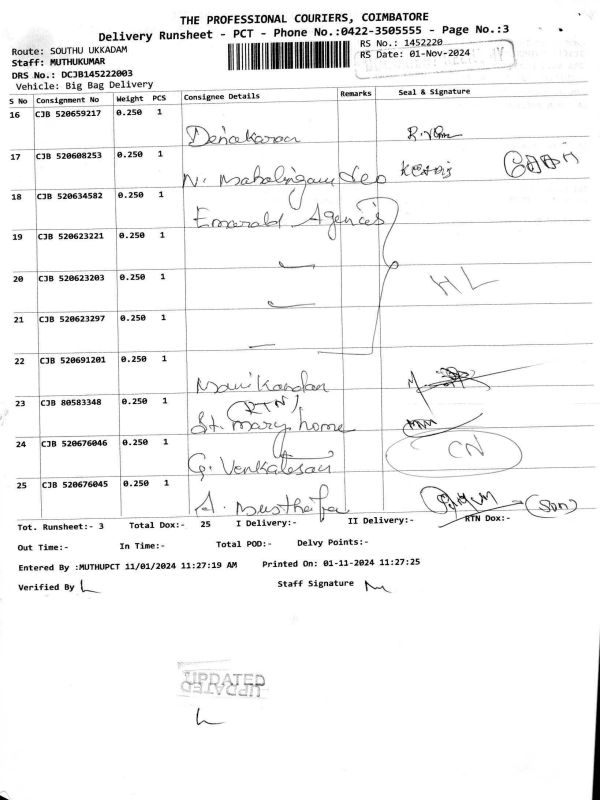 THE PROFESSIONAL COURIERS, COIMBATORE
Delivery Runsheet - PCT - Phone No.:0422-3505555 - Page No.:3
Route: SOUTHU UKKADAM
RS No.: 1452220
Staff: MUTHUKUMAR
RS Date: 01-Nov-2024
DRS No.: DCJB145222003
Vehicle: Big Bag Delivery
S No Consignment No Weight PCS Consignee Details Remarks Seal & Signature
16 CJB 520659217 0.250 1
17 CJB 520608253 0.250 1
N. Mahalingam
18 CJB 520634582 0.250 1
Emerald Agencies
19 CJB 520623221 0.250 1
20 CJB 520623203 0.250 1
HL
21 CJB 520623297 0.250 1
22 CJB 520691201 0.250 1
Manikandan
23 CJB 80583348 0.250 1
(RTN)
St. mary home
24 CJB 520676046 0.250 1
CN
G. Venkatesan
25 CJB 520676045 0.250 1
A. Musthafa
(son)
Tot. Runsheet:- 3 Total Dox:- 25 I Delivery:- II Delivery:- RTN Dox:-
Out Time:- In Time:- Total POD:- Delvy Points:-
Entered By :MUTHUPCT 11/01/2024 11:27:19 AM Printed On: 01-11-2024 11:27:25
Verified By
Staff Signature
UPDATED
UPDATED